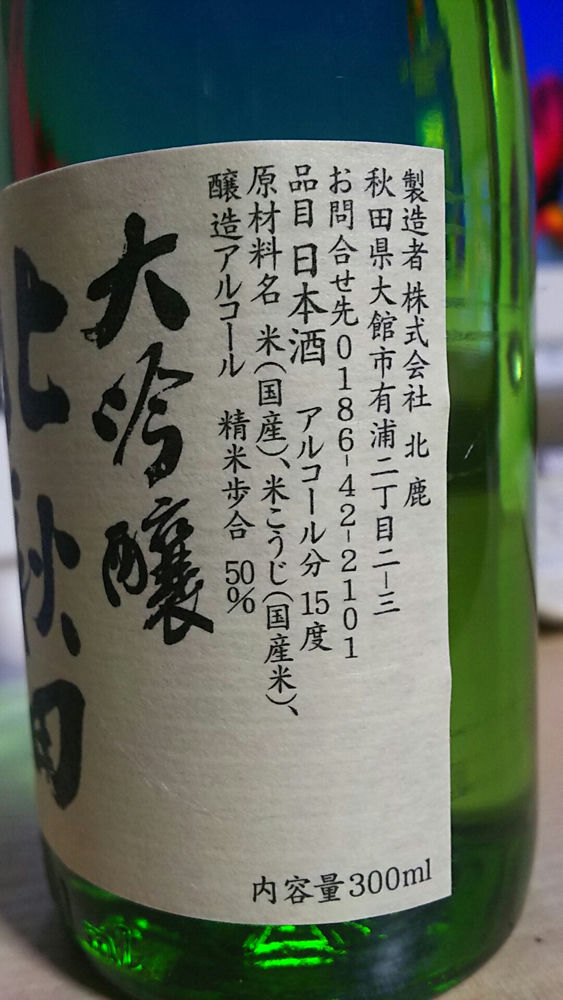 製造者 株式会社 北鹿
秋田県大館市有浦二丁目二–三
お問合せ先0186-42-2101
品目 日本酒 アルコール分15度
原材料名 米(国産)、米こうじ(国産米)、
醸造アルコール 精米歩合 50%
大吟醸
北秋田
内容量300ml